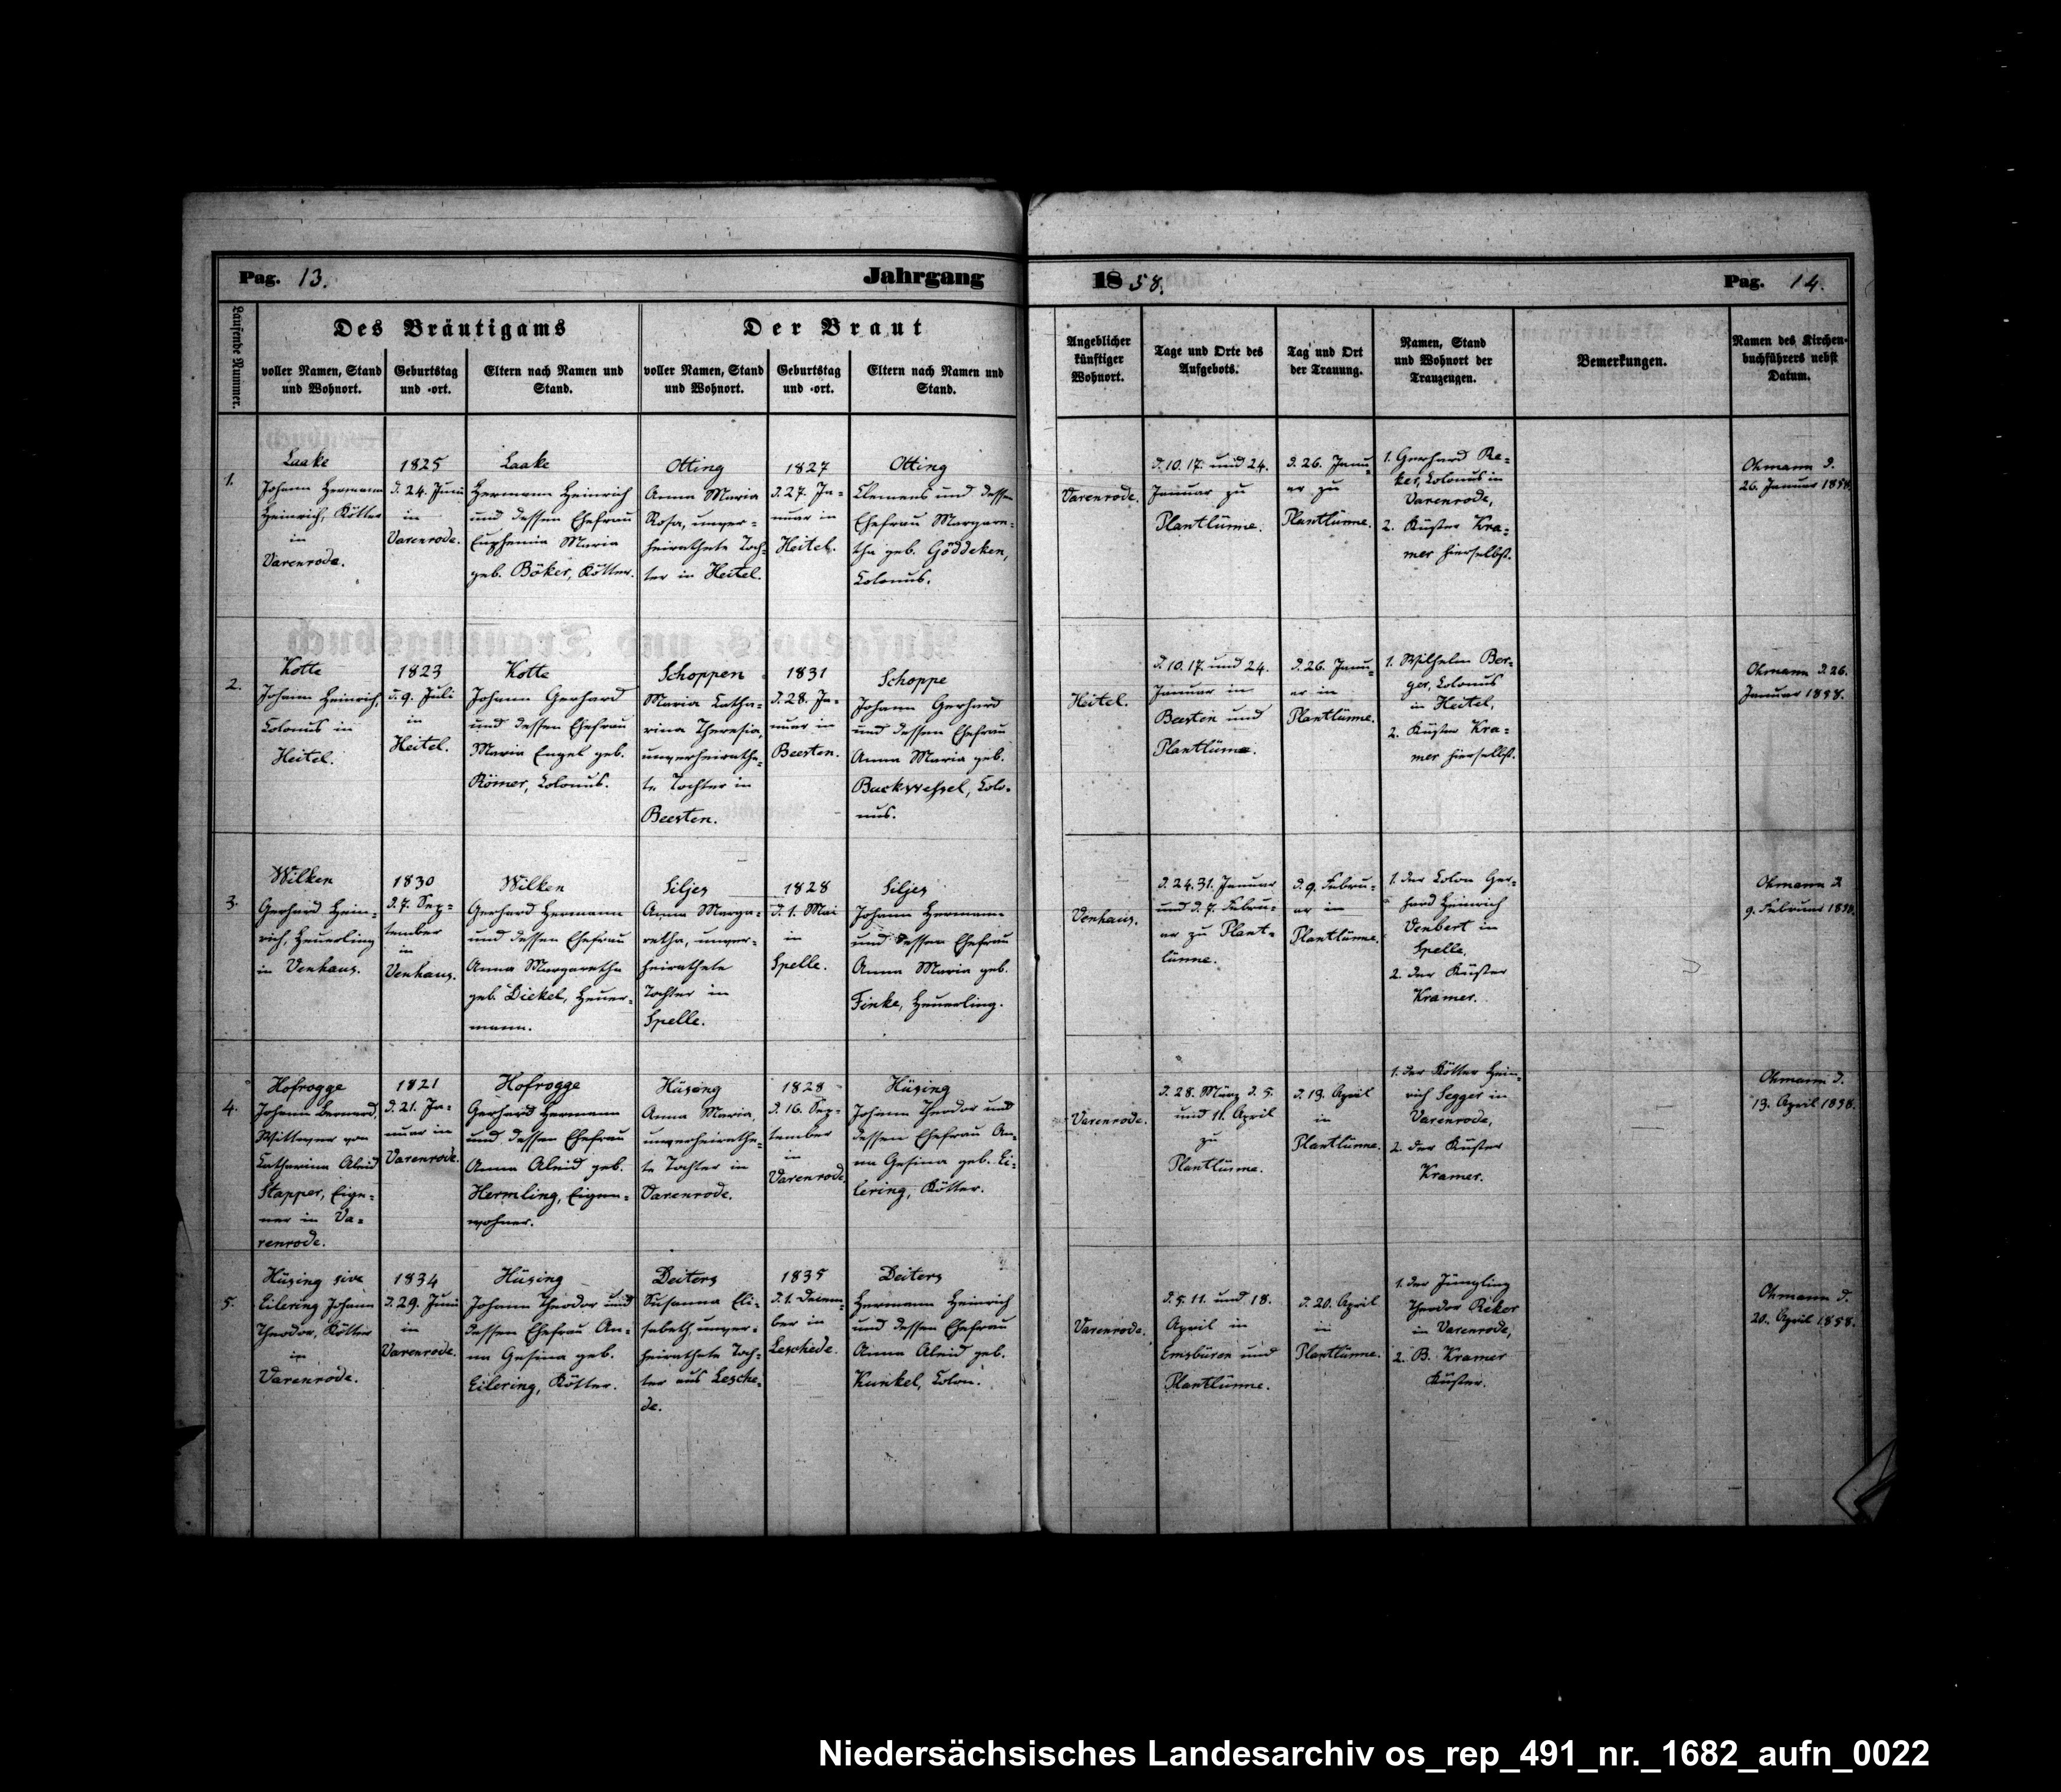 Pag. 13.
Jahrgang
1858.
Pag. 14.
Laufende Nummer.
Des Bräutigams
voller Namen, Stand
und Wohnort.
Geburtstag
und -ort.
Eltern nach Namen und
Stand.
Der Braut
voller Namen, Stand
und Wohnort.
Geburtstag
und -ort.
Eltern nach Namen und
Stand.
Angeblicher
künftiger
Wohnort.
Tage und Orte des
Aufgebots.
Tag und Ort
der Trauung.
Namen, Stand
und Wohnort der
Trauzeugen.
Bemerkungen.
Namen des Kirchen-
buchführers nebst
Datum.
1.
Laake
Johann Hermann
Heinrich, Kötter
in
Varenrode.
1825
d. 24. Juni
in
Varenrode.
Laake
Hermann Heinrich
und dessen Ehefrau
Euphemia Maria
geb. Böker, Kötter.
Otting
Anna Maria
Rosa, unver-
heirathete Toch-
ter in Heitel.
1827
d. 27. Ja-
nuar in
Heitel.
Otting
Clemens und dessen
Ehefrau Margare-
tha geb. Göddeken,
Colonus.
Varenrode.
d. 10. 17. und 24.
Januar zu
Plantlünne.
d. 26. Janu-
ar zu
Plantlünne.
1. Gerhard Re-
ker, Colonus in
Varenrode,
2. Küster Kra-
mer hierselbst.
Ohmann d.
26. Januar 1858.
2.
Kotte
Johann Heinrich,
Colonus in
Heitel.
1823
d. 9. Juli
in
Heitel.
Kotte
Johann Gerhard
und dessen Ehefrau
Maria Engel geb.
Römer, Colonus.
Schoppen
Maria Catha-
rina Theresia,
unverheirathe-
te Tochter in
Beesten.
1831
d. 28. Ja-
nuar in
Beesten.
Schoppe
Johann Gerhard
und dessen Ehefrau
Anna Maria geb.
Buckwessel, Colo-
nus.
Heitel.
d. 10. 17. und 24.
Januar in
Beesten und
Plantlünne.
d. 26. Janu-
ar in
Plantlünne.
1. Wilhelm Ber-
ger, Colonus
in Heitel,
2. Küster Kra-
mer hierselbst.
Ohmann d. 26.
Januar 1858.
3.
Wilken
Gerhard Hein-
rich, Heuerling
in Venhaus.
1830
d. 7. Sep-
tember
in
Venhaus.
Wilken
Gerhard Hermann
und dessen Ehefrau
Anna Margaretha
geb. Diekel, Heuer-
mann.
Siljes
Anna Marga-
retha, unver-
heirathete
Tochter in
Spelle.
1828
d. 1. Mai
in
Spelle.
Siljes
Johann Hermann
und dessen Ehefrau
Anna Maria geb.
Finke, Heuerling.
Venhaus.
d. 24. 31. Januar
und d. 7. Febru-
ar zu Plant-
lünne.
d. 9. Febru-
ar in
Plantlünne.
1. der Colon Ger-
hard Heinrich
Venbert in
Spelle.
2. der Küster
Kramer.
Ohmann d.
9. Februar 1858.
4.
Hofrogge
Johann Bernard,
Wittwer von
Catharina Aleid
Stapper, Eige-
ner in Va-
renrode.
1821
d. 21. Ja-
nuar in
Varenrode.
Hofrogge
Gerhard Hermann
und dessen Ehefrau
Anna Aleid geb.
Hermling, Eigen-
wohner.
Hüsing
Anna Maria,
unverheirathe-
te Tochter in
Varenrode.
1828
d. 16. Sep-
tember
in
Varenrode.
Hüsing
Johann Theodor und
dessen Ehefrau An-
na Gesina geb. Ei-
lering, Kötter.
Varenrode.
d. 28. März d. 5.
und 11. April
zu
Plantlünne.
d. 13. April
in
Plantlünne.
1. der Kötter Hein-
rich Segger in
Varenrode,
2. der Küster
Kramer.
Ohmann d.
13. April 1858.
5.
Hüsing sive
Eilering Johann
Theodor, Kötter
in
Varenrode.
1834
d. 29. Juni
in
Varenrode.
Hüsing
Johann Theodor und
dessen Ehefrau An-
na Gesina geb.
Eilering, Kötter.
Deiters
Susanna Eli-
sabeth, unver-
heirathete Toch-
ter aus Lesche-
de.
1835
d. 1. Decem-
ber in
Leschede.
Deiters
Hermann Heinrich
und dessen Ehefrau
Anna Aleid geb.
Kunkel, Colon.
Varenrode.
d. 5. 11. und 18.
April in
Emsbüren und
Plantlünne.
d. 20. April
in
Plantlünne.
1. der Jüngling
Theodor Reker
in Varenrode,
2. B. Kramer
Küster.
Ohmann d.
20. April 1858.
Niedersächsisches Landesarchiv os_rep_491_nr._1682_aufn_0022